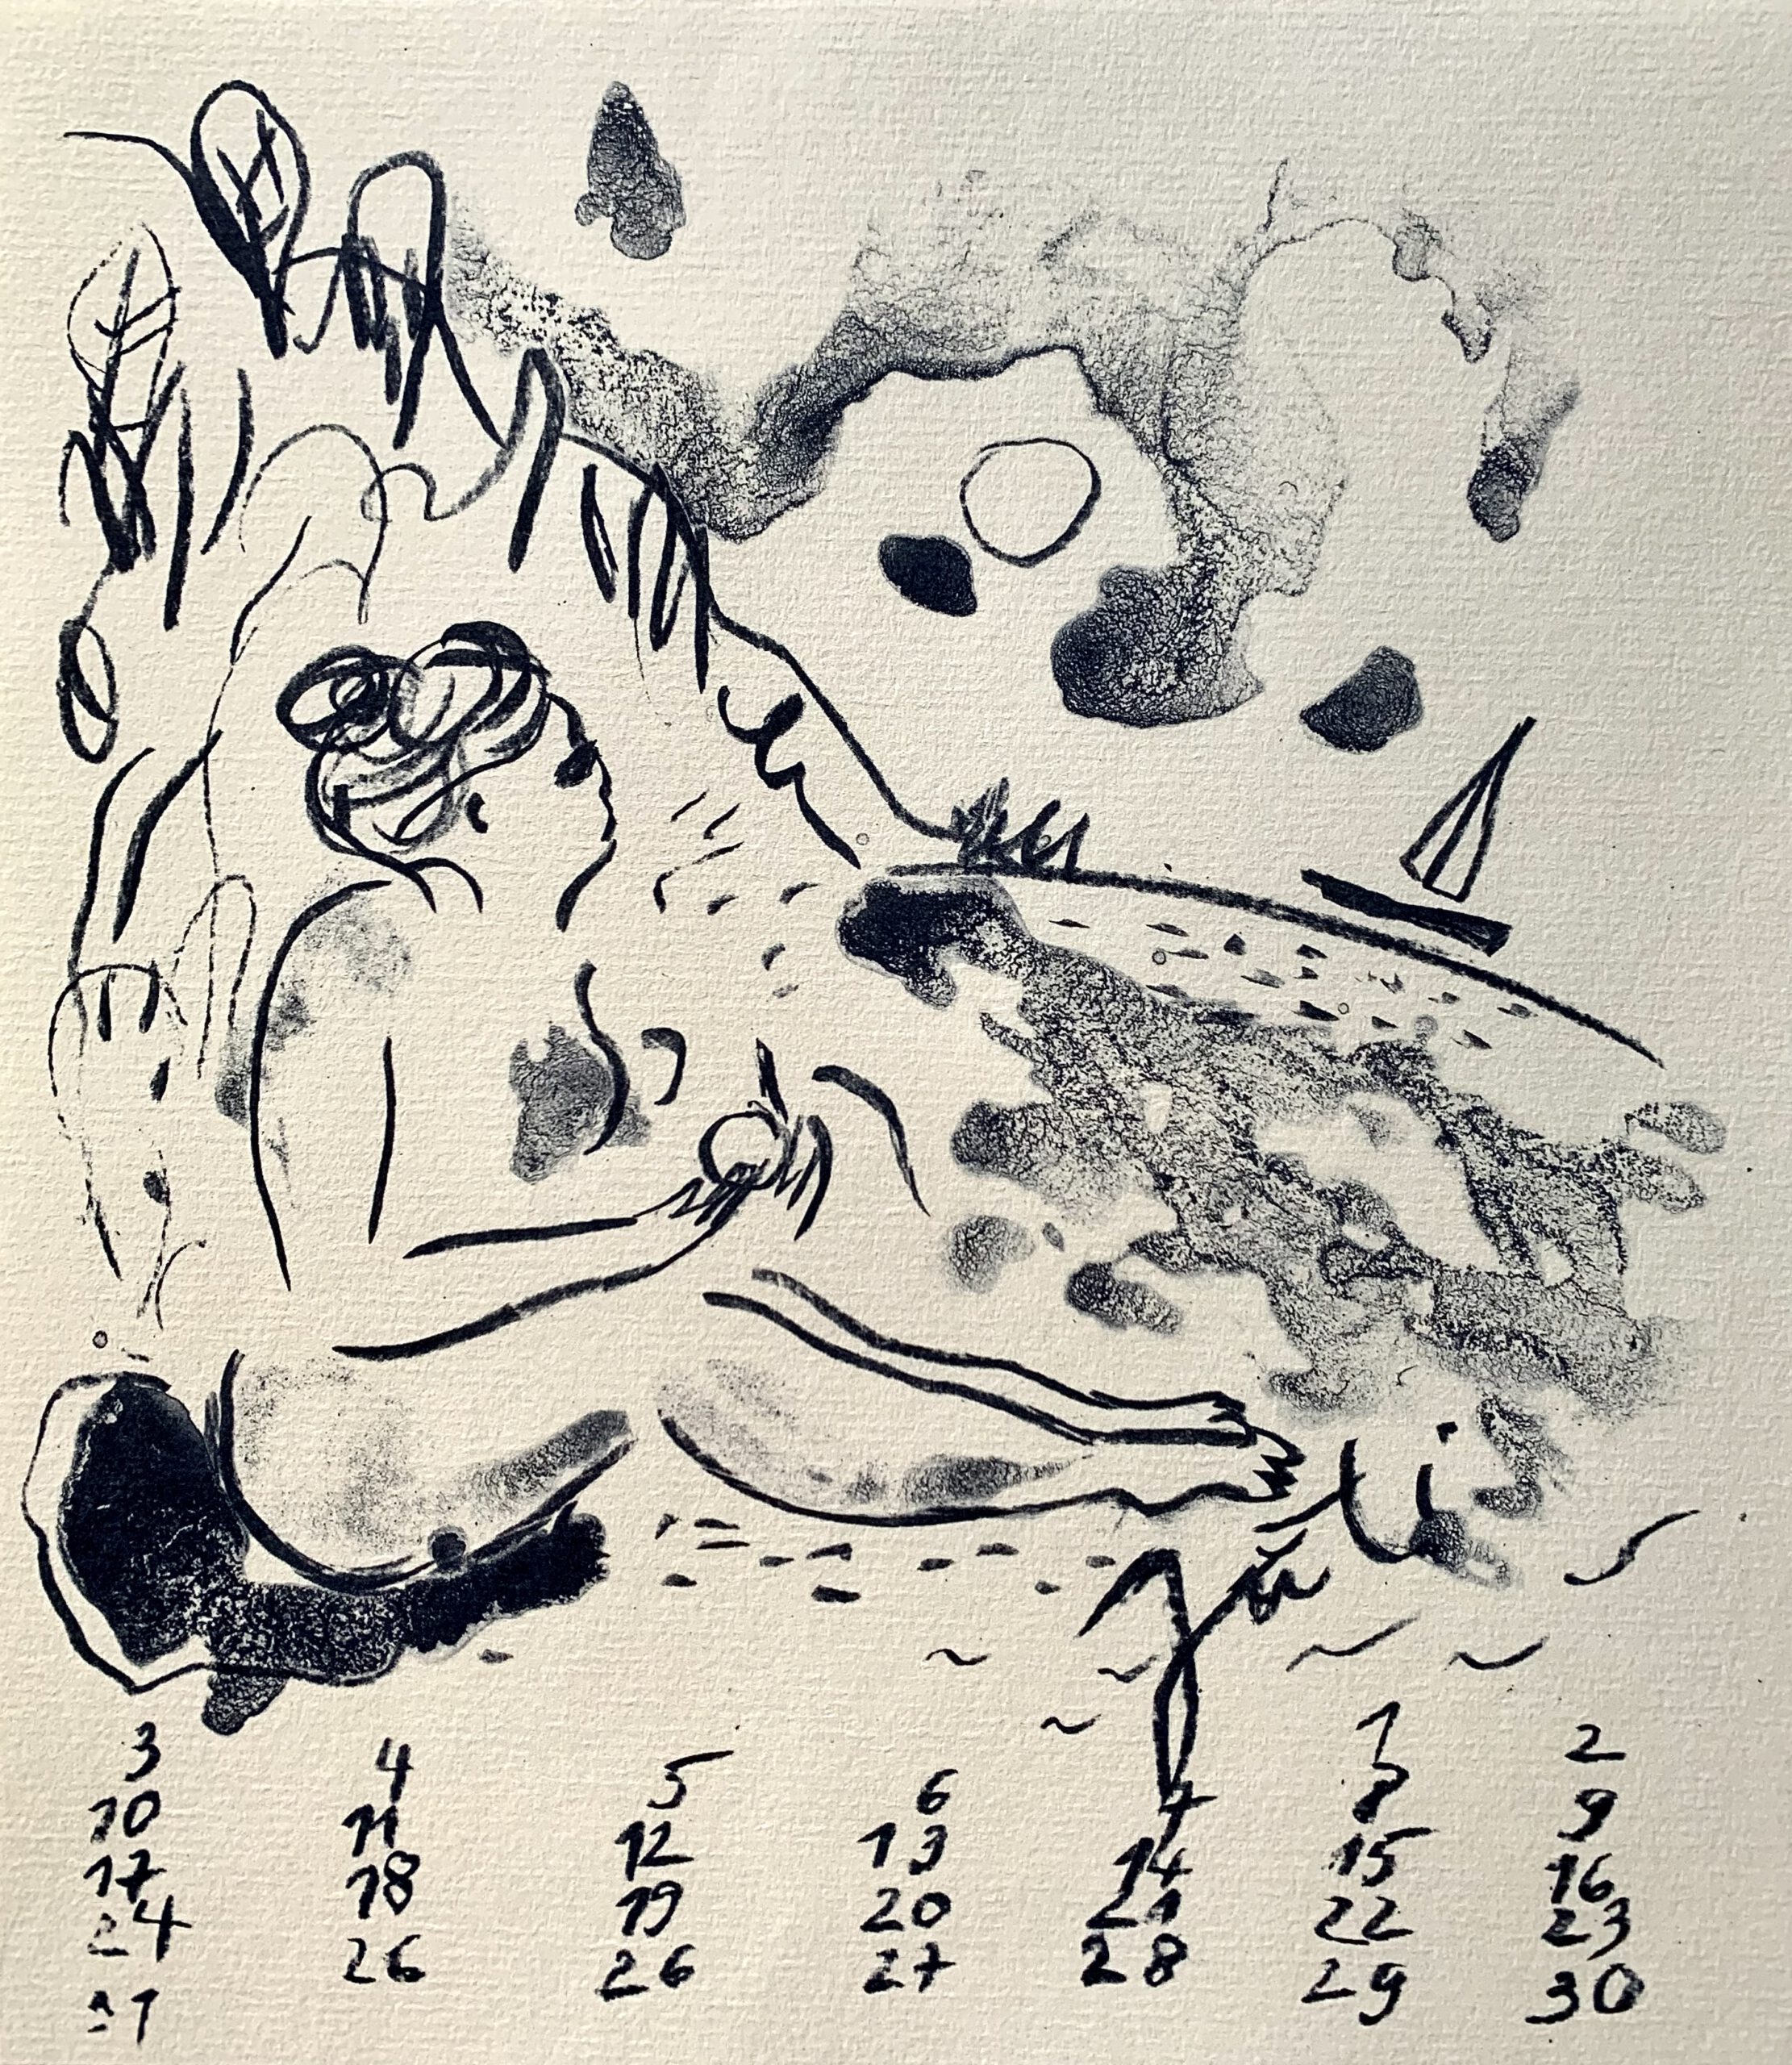 3 4 5 6 1 2
10 11 12 13 7 8 9
17 18 19 20 14 15 16
24 26 26 27 21 22 23
31 28 29 30